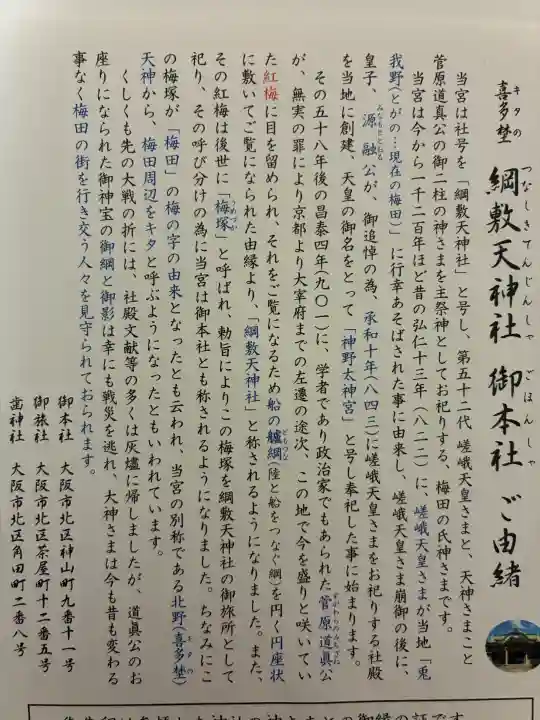 喜多埜 綱敷天神社 御本社 ご由緒
キタの つなしきてんじんしゃ ごほんしゃ
当宮は社号を「綱敷天神社」と号し、第五十二代 嵯峨天皇さまと、天神さまこと
菅原道真公の御二柱の神さまを主祭神としてお祀りする、梅田の氏神さまです。
当宮は今から一千二百年ほど昔の弘仁十三年(八二二)に、嵯峨天皇さまが当地「兎
我野(とがの…現在の梅田)」に行幸あそばされた事に由来し、嵯峨天皇さま崩御の後に、
皇子、源融公が、御追悼の為、承和十年(八四三)に嵯峨天皇さまをお祀りする社殿
みなもととおる
を当地に創建、天皇の御名をとって「神野太神宮」と号し奉祀した事に始まります。
その五十八年後の昌泰四年(九〇一)に、学者であり政治家でもあられた菅原道真公
すがわらのみちざね
が、無実の罪により京都より大宰府までの左遷の途次、この地で今を盛りと咲いてい
た紅梅に目を留められ、それをご覧になるため船の艫綱(陸と船をつなぐ綱)を円く円座状
ともづな
に敷いてご覧になられた由縁より、「綱敷天神社」と称されるようになりました。また、
その紅梅は後世に「梅塚」と呼ばれ、勅旨によりこの梅塚を綱敷天神社の御旅所として
うめづか
祀り、その呼び分けの為に当宮は御本社とも称されるようになりました。ちなみにこ
の梅塚が「梅田」の梅の字の由来となったとも云われ、当宮の別称である北野(喜多埜)
キタの
天神から、梅田周辺をキタと呼ぶようになったともいわれています。
くしくも先の大戦の折には、社殿文献等の多くは灰燼に帰しましたが、道真公のお
座りになられた御神宝の御綱と御影は幸にも戦災を逃れ、大神さまは今も昔も変わる
事なく梅田の街を行き交う人々を見守られておられます。
御本社 大阪市北区神山町九番十一号
御旅社 大阪市北区茶屋町十二番五号
歯神社 大阪市北区角田町二番八号